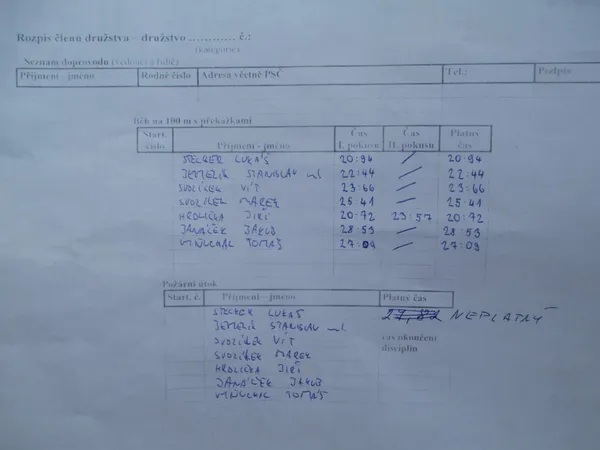 Rozpis členů družstva – družstvo ………… č.:
(kategorie)
Seznam doprovodu (vedoucí a řidič)
Příjmení – jméno Rodné číslo Adresa včetně PSČ Tel.: Podpis
Běh na 100 m s překážkami
Start. číslo Příjmení – jméno Čas I. pokusu Čas II. pokusu Platný čas
STECHER LUKÁŠ 20:94 / 20:94
STANISLAV ml 22:44 / 22:44
SVOZÍLEK VÍT 23:66 / 23:66
SVOZÍLEK MAREK 25:41 / 25:41
HRDLIČKA JIŘÍ 20:72 23:57 20:72
JANÁČEK JAKUB 28:53 / 28:53
TOMÁŠ 27:09 / 27:09
Požární útok
Start. č. Příjmení – jméno Platný čas
STECHER LUKÁŠ 27,82 NEPLATNÝ
STANISLAV ml.
SVOZÍLEK VÍT čas ukončení
SVOZÍLEK MAREK disciplin
HRDLIČKA JIŘÍ
JANÁČEK JAKUB
TOMÁŠ